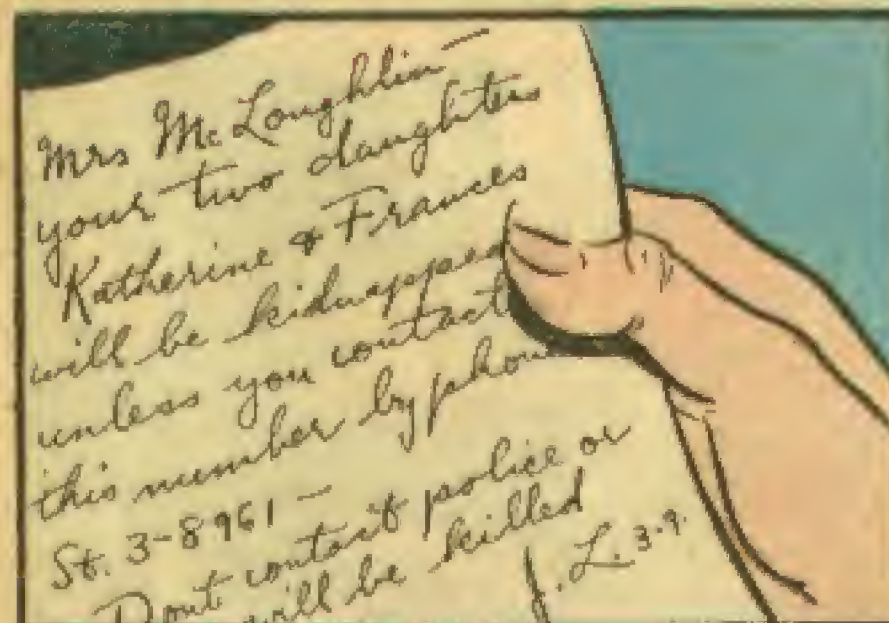 Mrs McLoughlin —
your two daughters
Katherine & Frances
will be kidnapped
unless you contact
this number by phone
St. 3-8961 —
Dont contact police or
will be killed
J. L. 3-9.